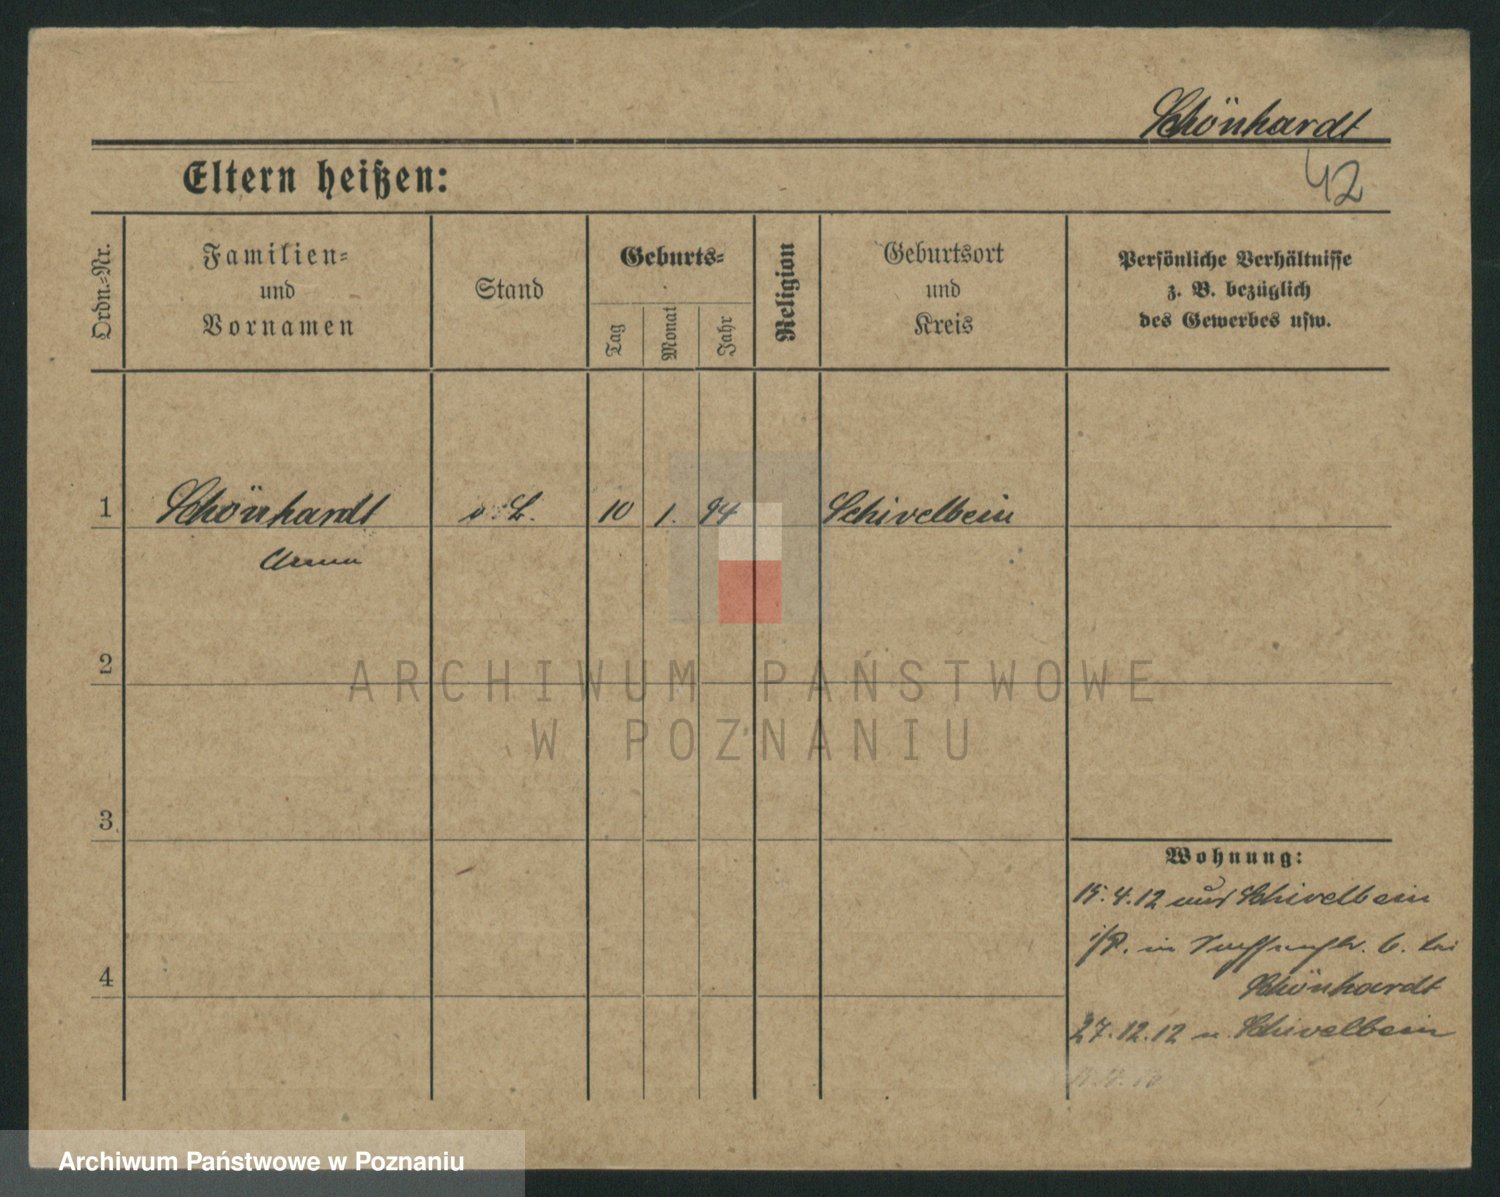 Schönhardt
42
Eltern heißen:
Ordn.-Nr.
Familien-
und
Vornamen
Stand
Geburts-
Tag
Monat
Jahr
Religion
Geburtsort
und
Kreis
Persönliche Verhältnisse
z. B. bezüglich
des Gewerbes usw.
1 Schönhardt 10 1. 94 Schivelbein
Anna
2
ARCHIWUM PAŃSTWOWE
W POZNANIU
3
Wohnung:
15.4.12 aus Schivelbein
in 6. bei
4
Schönhardt
27.12.12 n. Schivelbein
Archiwum Państwowe w Poznaniu